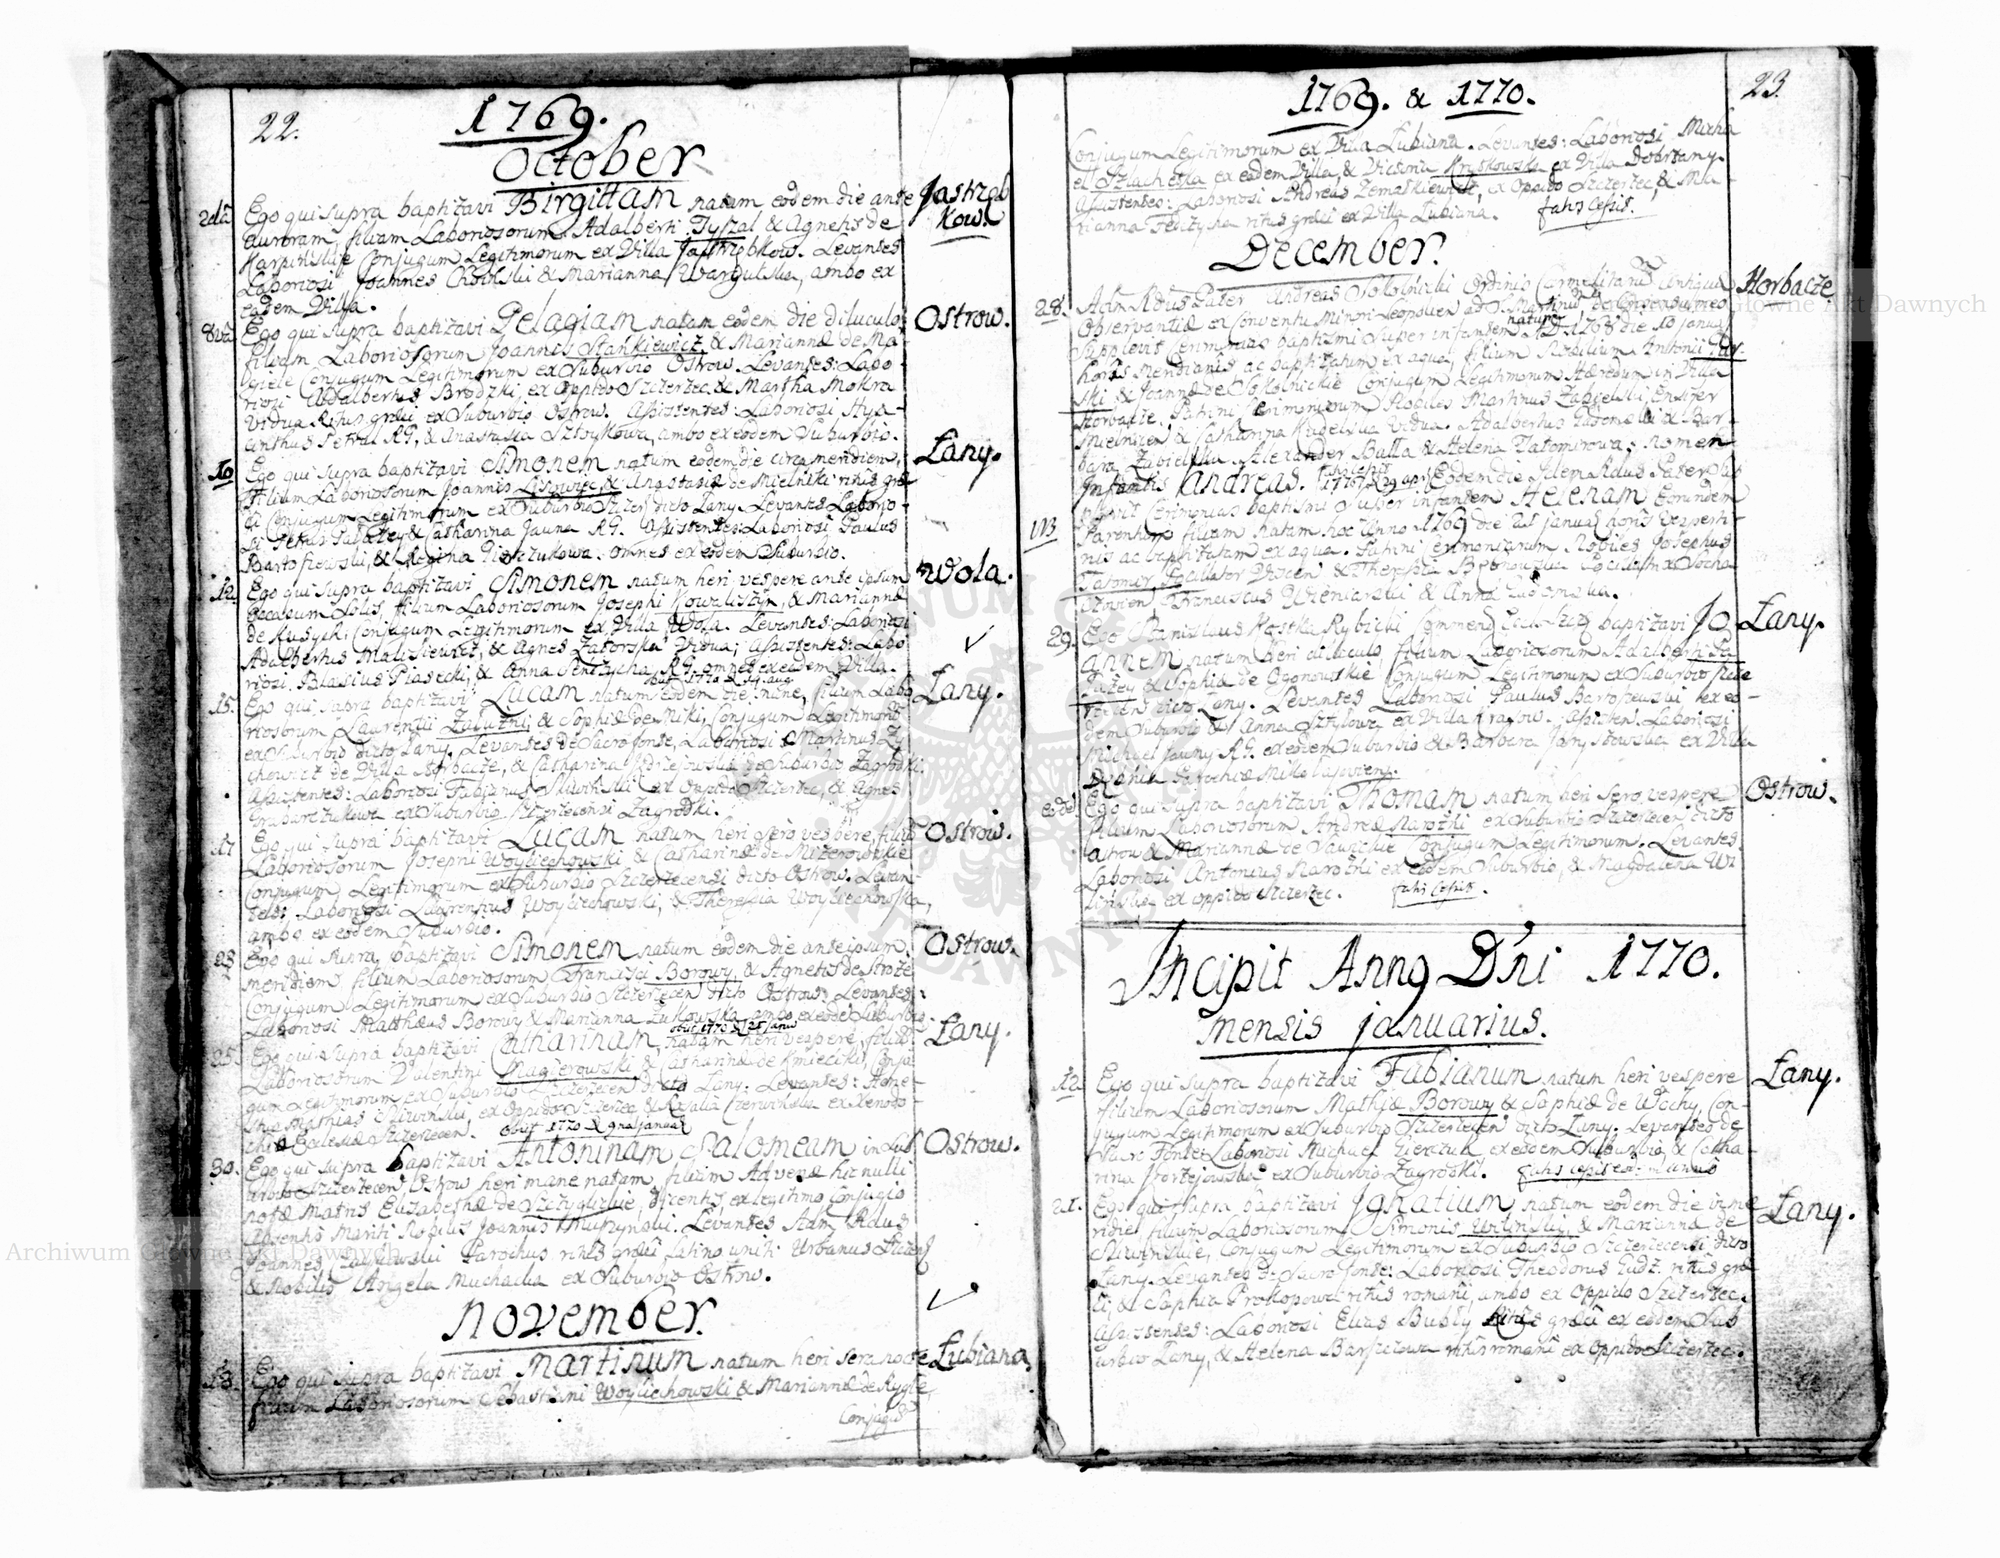 22.
1769.
October
2da
Ego qui supra baptizavi Birgittam natam eodem die ante
auroram, filiam Laboriosorum Adalberti Tyszal & Agnetis de
Conjugum Legitimorum ex Villa Jastrzobkow. Levantes
Laboriosi Joannes & Marianna Wargulska, ambo ex
eadem Villa.
Jastrzob
kow.
8va
Ego qui supra baptizavi Pelagiam natam eodem die diluculo,
filiam Laboriosorum Joannis Stankiewicz & Mariannæ de Ma-
giele Conjugum Legitimorum ex Suburbio Ostrow. Levantes: Labo-
riosi Adalbertus Brodzki, ex Oppido Szczerzec & Martha Mokra
vidua Ritus græci ex Suburbio Ostrow. Assistentes: Laboriosi Hya-
cinthus Petral RG, & Anastasia Sztoykowa, ambo ex eodem Suburbio.
Ostrow.
10
Ego qui supra baptizavi Simonem natum eodem die circa meridiem,
filium Laboriosorum Joannis Lisowiec, & Anastasiæ de Mielniki ritus græ-
ci Conjugum Legitimorum ex Suburbio Szczer: dicto Lany. Levantes Laborio-
si Petrus & Catharina Jauna RG. Assistentes: Laboriosi Paulus
Bartoszewski, & Regina omnes ex eodem Suburbio.
Lany.
12.
Ego qui supra baptizavi Simonem natum heri vespere ante ipsum
occasum Solis, filium Laboriosorum Josephi Kowaliszyn, & Mariannæ
de Rusych, Conjugum Legitimorum ex Villa Wola. Levantes: Laboriosi
Adalbertus Malisiewicz, & Agnes Zatorska Vidua; Assistentes: Labo-
riosi Blasius Piasecki, & Anna RG. omnes ex eadem Villa.
Wola.
obiit 1770 d. 14. aug.
15.
Ego qui supra baptizavi Lucam natum eodem die mane, filium Labo
riosorum Laurentii Zaluzni, & Sophiæ de Miki, Conjugum Legitimorum
ex Suburbio dicto Lany. Levantes de Sacro fonte, Laboriosi Martinus
de Villa Horbacze, & Catharina de Suburbio Zagrodki.
Assistentes: Laboriosi Fabianus Sliwinski ex Oppido Szczerzec, & Agnes
Grabarczukowa ex Suburbio Szczerzecensi Zagrodki.
Lany.
17
Ego qui supra baptizavi Lucam natum heri sero vespere, filium
Laboriosorum Josephi Woyciechowski & Catharinæ de Mizerowskie
Conjugum Legitimorum ex Suburbio Szczerzecensi dicto Ostrow. Levan-
tes: Laboriosi Laurentius Woyciechowski, & Theresia Woyciechowska,
ambo ex eodem Suburbio.
Ostrow.
23
Ego qui supra baptizavi Simonem natum eodem die ante ipsum
meridiem filium Laboriosorum Francisci Borowy, & Agnetis de Stroze
Conjugum Legitimorum ex Suburbio Szczerzecen dicto Ostrow. Levantes:
Laboriosi Matthæus Borowy & Marianna Zukowska ambo ex eode Suburbio.
Ostrow.
obiit 1770 d. 25 Janu
25.
Ego qui supra baptizavi Catharinam, natam heri vespere, filiam
Laboriosorum Valentini Magierowski & Catharinæ de Kmieciki, Conju-
gum Legitimorum ex Suburbio Szczerzecen dicto Lany. Levantes: Hone-
stus Mathias Sliwinski, ex Oppido Szczerzec & Rosalia Czerwinska ex Xenodo-
chio Ecclesiæ Szczerzecen.
Lany.
obiit 1770 d. 9na januar
30.
Ego qui supra baptizavi Antoninam Salomeam in Sub
urbio Szczerzecen Ostrow heri mane natam, filiam Advenæ hic nulli
notæ Matris Elizabethæ de Szczyglickie, dicentis, ex legitimo Conjugio
absentis Mariti Nobilis Joannis Levantes Adm Rdus
Joannes Parochus ritus græci Latino uniti: Urbanus
& Nobilis Angela Michaelia ex Suburbio Ostrow.
Ostrow.
November.
13.
Ego qui supra baptizavi Martinum natum heri sera nocte
filium Laboriosorum Sebastiani Woyciechowski & Mariannæ de Rygle,
Conjugu
Lubiana
23.
1769. & 1770.
Conjugum Legitimorum ex Villa Lubiana. Levantes: Laboriosi Micha
el Szlachetka ex eadem Villa, & Victoria Kruskowska ex Villa Dobrzany.
Assistentes: Laboriosi Andreas Zemalkiewicz, ex Oppido Szczerzec, & Ma
rianna ritus græci ex Villa Lubiana.
December.
28.
Adm Rdus Pater Andreas Sokolnicki Ordinis Carmelitanu Antiqua
Observantiæ ex Conventu Minori Leopolien ad S. Martinu de Consensu meo
Supplevit Cerimonias baptismi super infantem natum A.D. 1768 die 10 Janua
horis meridianis ac baptizatum ex aqua, filium Nobilium Antonii
ski & Joannæ de Sokolnickie Conjugum Legitimorum Hæredum in Villa
Horbacze. Patrini Cerimoniarum Nobiles Martinus Zabielski, Ensifer
& Catharina Kugelska Vidua. Adalbertus & Bar-
bara Zabielska. Alexander Bulla & Helena Tatomirowa; nomen
Infantis Andreas. Eodem die Idem Rdus Pater sup
plevit Cerimonias baptismi super infantem Helenam Eorundem
Parentum filiam natam hoc Anno 1769 die 21 Janua horis vesperti-
nis ac baptizatam ex aqua. Patrini Cerimoniarum Nobiles Josephus
Tatomir & Theresia
Franciscus Wisniarski & Anna
NB
Horbacze
29.
Ego Stanislaus Kostka Rybicki Commend Eccl: Szcz: baptizavi Jo
annem natum heri diluculo filium Laboriosorum Adalberti Pa
& Sophiæ de Ogonowskie Conjugum Legitimorum ex Suburbio Szcze
rzecen dicto Lany. Levantes Laboriosi Paulus Bartoszewski ex eo-
dem Suburbio & Anna Sztylowa ex Villa Krasow. Assisten: Laboriosi
Michael Jauny RG. ex eodem Suburbio & Barbara Janyszowska ex Villa
Parochiæ Mikolajovien.
Lany.
eodē
Ego qui supra baptizavi Thomam natum heri sero vespere
filium Laboriosorum Andreæ Narozni ex Suburbio Szczerzecen dicto
Ostrow & Mariannæ de Conjugum Legitimorum. Levantes
Laboriosi Antonius Narozni ex eodem Suburbio, & Magdalena Wi
linska ex oppido Szczerzec.
Ostrow.
Incipit Anno D'ni 1770.
mensis januarius.
12
Ego qui supra baptizavi Fabianum natum heri vespere
filium Laboriosorum Mathiæ Borowy & Sophiæ de Włochy, Con-
jugum Legitimorum ex Suburbio Szczerzecen dicto Lany. Levantes de
Sacro Fonte: Laboriosi Michael Gierczuk ex eodem Suburbio & Catha-
rina ex Suburbio Zagrodki.
Lany.
21.
Ego qui supra baptizavi Ignatium natum eodem die in me
ridie, filium Laboriosorum Simonis Urlinski, & Mariannæ de
Sliwinskie, Conjugum Legitimorum ex Suburbio Szczerzecensi dicto
Lany. Levantes de Sacro fonte: Laboriosi Theodorus Gudz ritus græ
ci, & Sophia Prokopowa ritus romani, ambo ex Oppido Szczerzec.
Assistentes: Laboriosi Elias Bubly Ritus græci ex eodem Sub
urbio Lany, & Helena Barszczowa ritus romani ex Oppido Szczerzec.
Lany.
Archiwum Główne Akt Dawnych
Archiwum Główne Akt Dawnych